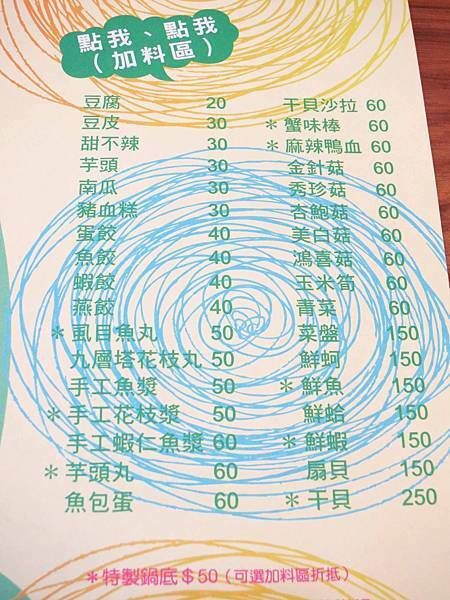 點我、點我
（加料區）
豆腐 20
豆皮 30
甜不辣 30
芋頭 30
南瓜 30
豬血糕 30
蛋餃 40
魚餃 40
蝦餃 40
燕餃 40
＊虱目魚丸 50
九層塔花枝丸 50
手工魚漿 50
＊手工花枝漿 50
手工蝦仁魚漿 60
＊芋頭丸 60
魚包蛋 60
干貝沙拉 60
＊蟹味棒 60
＊麻辣鴨血 60
金針菇 60
秀珍菇 60
杏鮑菇 60
美白菇 60
鴻喜菇 60
玉米筍 60
青菜 60
菜盤 150
鮮蚵 150
＊鮮魚 150
鮮蛤 150
＊鮮蝦 150
扇貝 150
＊干貝 250
＊特製鍋底＄50（可選加料區折抵）